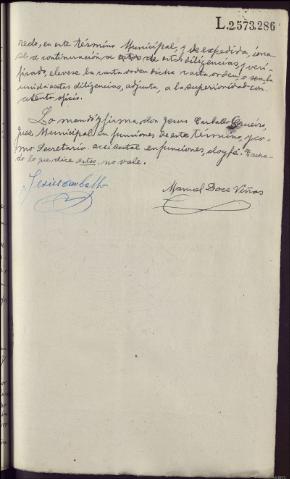 L.2573.286
redo, en este término Municipal, y de expedida, únase
a continuación de estas diligencias, y veri-
ficado, elevese la carta orden dicha
unida estas diligencias, adjunta, a la superioridad con
atento oficio.
Lo mandó y firma, don Jesus Carballo
Juez Municipal en funciones de este término, y co-
mo Secretario accidental en funciones, doy fé. Tacha-
do lo que dice estas, no vale.
Jesus Carballo
Manuel Doce Viñas